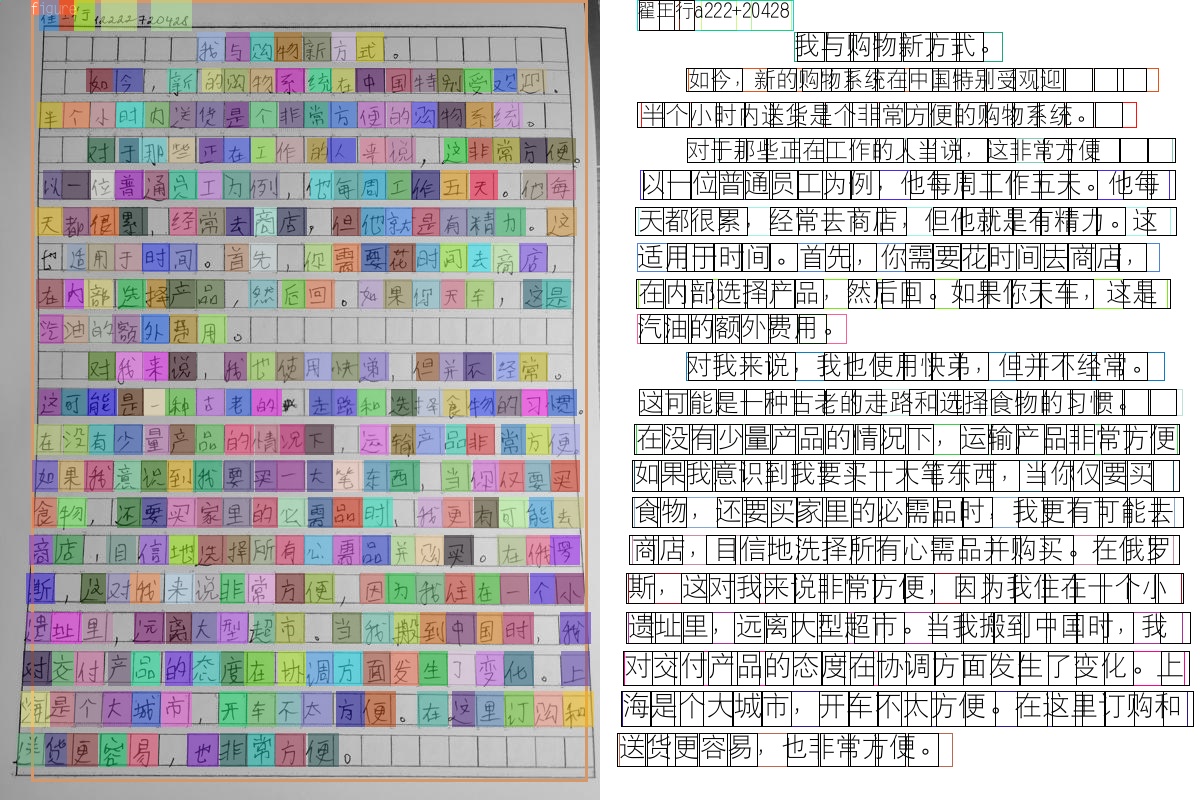 figure
我与购物新方式。
如今，新的购物系统在中国特别受欢迎.
半个小时内送货是个非常方便的购物系统。
对于那些正在工作的人来说，这非常方便。
以一位普通员工为例，他每周工作五天。他每
天都很累，经常去商店，但他就是有精力。这
也适用于时间。首先，你需要花时间去商店，
在内部选择产品，然后回。如果你天车，这是
汽油的额外费用。
对我来说，我也使用快递，但并不经常。
这可能是一种古老的走路和选择食物的习惯。
在没有少量产品的情况下，运输产品非常方便
如果我意识到我要买一大笔东西，当你仅要买
食物，还要买家里的必需品时，我更有可能去
商店，目信地选择所有心需品并购买。在俄罗
斯，这对我来说非常方便，因为我住在一个小
遗址里，远离大型超市。当我搬到中国时，我
对交付产品的态度在协调方面发生了变化。上
海是个大城市，开车不太方便。在这里订购和
送货更容易，也非常方便。
翟玨行a222+20428
我与购物新方式。
如今，新的购物系统在中国特别受观迎
半个小时内送货是个非常方便的购物系统。
对于那些正在工作的人当说，这非常方便
以一位普通员工为例，他每周工作五天。他每
天都很累，经常去商店，但他就是有精力。这
适用于时间。首先，你需要花时间去商店，
在内部选择产品，然后回。如果你未车，这是
汽油的额外费用。
对我来说，我也使用快弟，但并不经常。
这可能是一种古老的走路和选择食物的习惯。
在没有少量产品的情况下，运输产品非常方便
如果我意识到我要买十大笔东西，当你仅要买
食物，还要买家里的必需品时，我更有可能去
商店，目信地选择所有心需品并购买。在俄罗
斯，这对我来说非常方便，因为我住在十个小
遗址里，远离大型超市。当我搬到中国时，我
对交付产品的态度在协调方面发生了变化。上
海是个大城市，开车不太方便。在这里订购和
送货更容易，也非常方便。